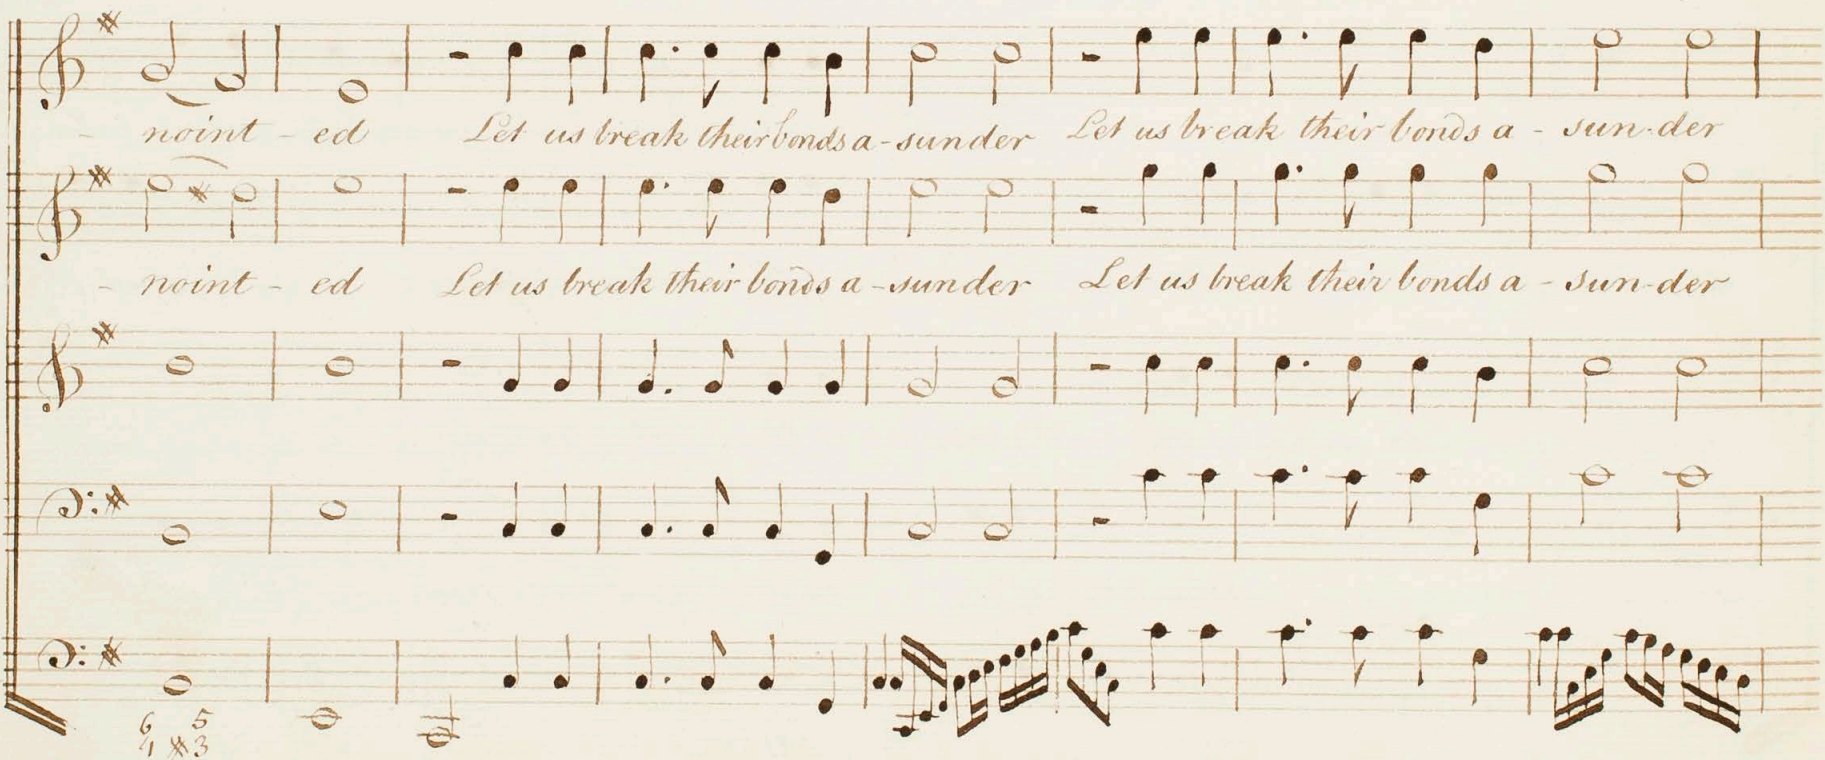 - noint - ed Let us break their bonds a - sunder Let us break their bonds a - sun - der
- noint - ed Let us break their bonds a - sunder Let us break their bonds a - sun - der
6 5
4 #3